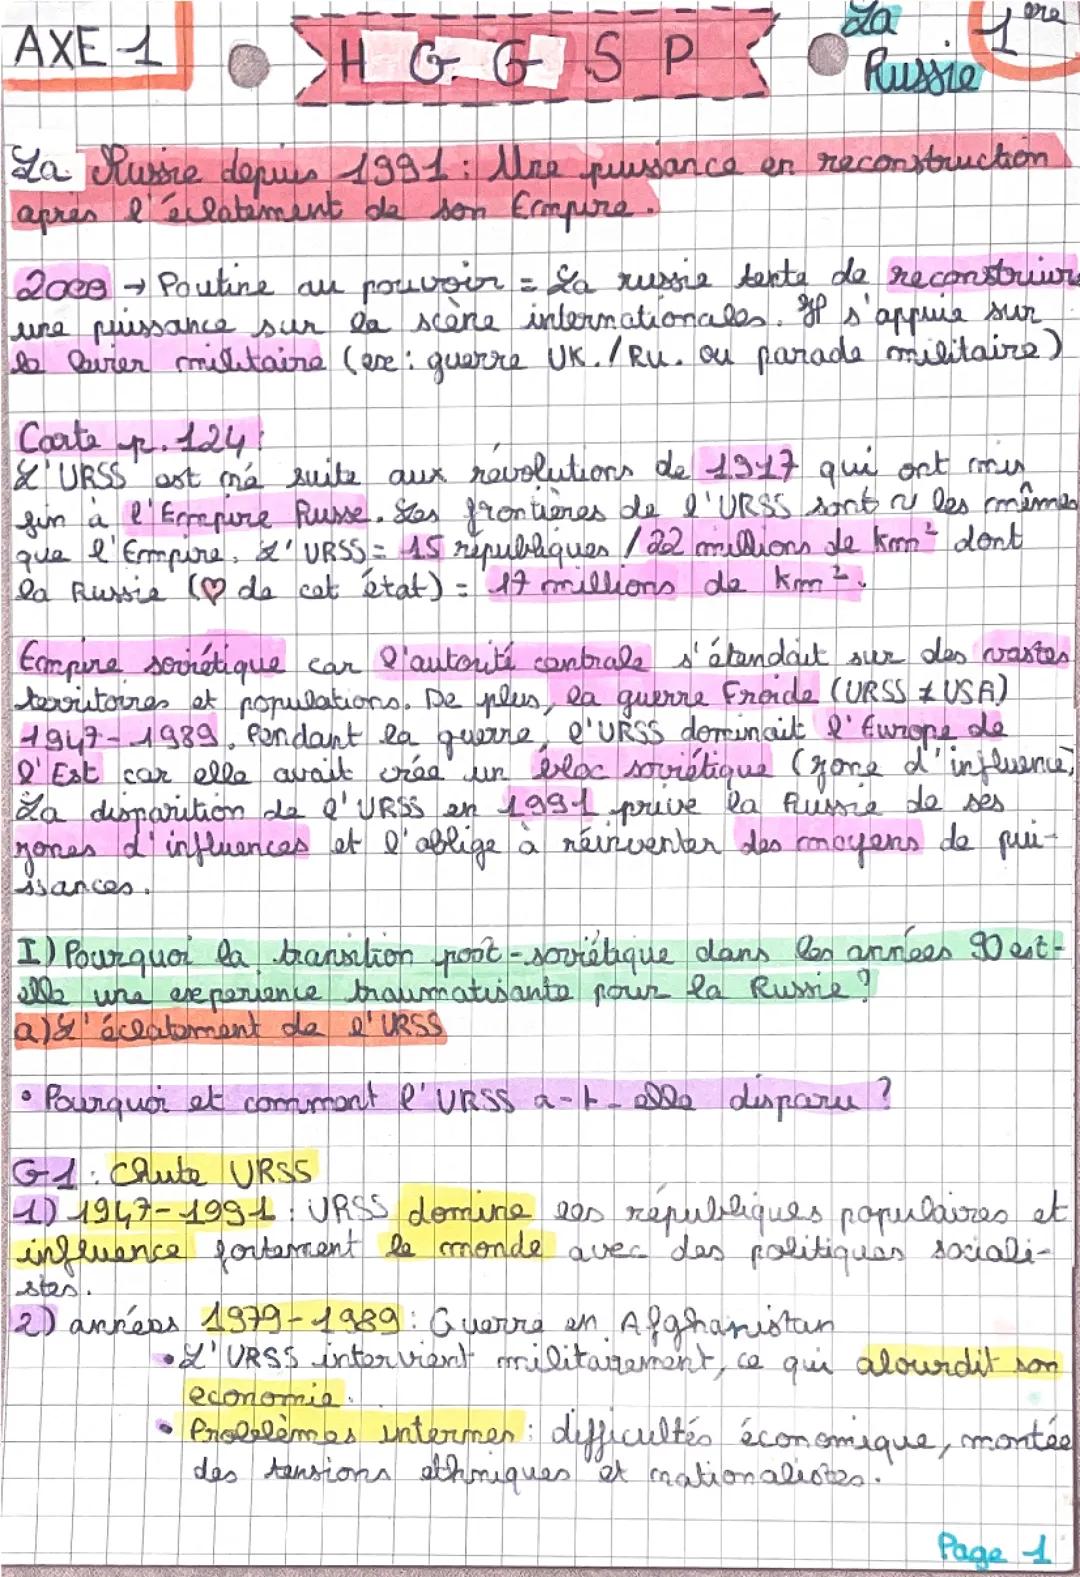 AXE 1
H G G S P
La Russie
1ère
La Russie depuis 1991 : Une puissance en reconstruction
après l'éclatement de son Empire.
2000 → Poutine au pouvoir = La russie tente de reconstruire
une puissance sur la scène internationales. Il s'appuie sur
le levier militaire (ex : guerre UK. / Ru. ou parade militaire)
Carte p. 124 :
L'URSS est né suite aux révolutions de 1917 qui ont mis
fin à l'Empire Russe. Les frontières de l'URSS sont ~ les mêmes
que l'Empire. L'URSS = 15 républiques / 22 millions de km² dont
la Russie (♡ de cet état) = 17 millions de km².
Empire soviétique car l'autorité centrale s'étendait sur des vastes
territoires et populations. De plus, la guerre Froide (URSS ≠ USA)
1947-1989. Pendant la guerre, l'URSS dominait l'Europe de
l'Est car elle avait crée un bloc soviétique (zone d'influence)
La disparition de l'URSS en 1991 prive la Russie de ses
zones d'influences et l'oblige à réinventer des moyens de pui-
ssances.
I) Pourquoi la transition post-soviétique dans les années 90 est-
elle une experience traumatisante pour la Russie ?
a) L'éclatement de l'URSS
• Pourquoi et comment l'URSS a-t-elle disparu ?
G1 : Chute URSS
1) 1947-1991 : URSS domine les républiques populaires et
influence fortement le monde avec des politiques sociali-
stes.
2) années 1979-1989 : Guerre en Afghanistan
• L'URSS intervient militairement, ce qui alourdit son
economie.
• Problèmes internes : difficultés économique, montée
des tensions ethniques et nationalistes.
Page 1